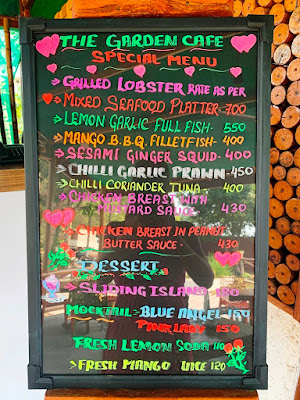 THE GARDEN CAFE
SPECIAL MENU
GRILLED LOBSTER RATE AS PER
MIXED SEAFOOD PLATTER - 700
LEMON GARLIC FULL FISH - 550
MANGO B.B.Q. FILLETFISH - 400
SESAMI GINGER SQUID - 400
CHILLI GARLIC PRAWN - 450
CHILLI CORIANDER TUNA - 400
CHICKEN BREAST WITH
MUSTARD SAUCE - 430
CHICKEN BREAST IN PEANUT
BUTTER SAUCE - 430
DESSERT
SLIDING ISLAND - 180
MOCKTAIL - BLUE ANGEL - 150
PINK LADY 150
FRESH LEMON SODA 110
FRESH MANGO JUICE 120